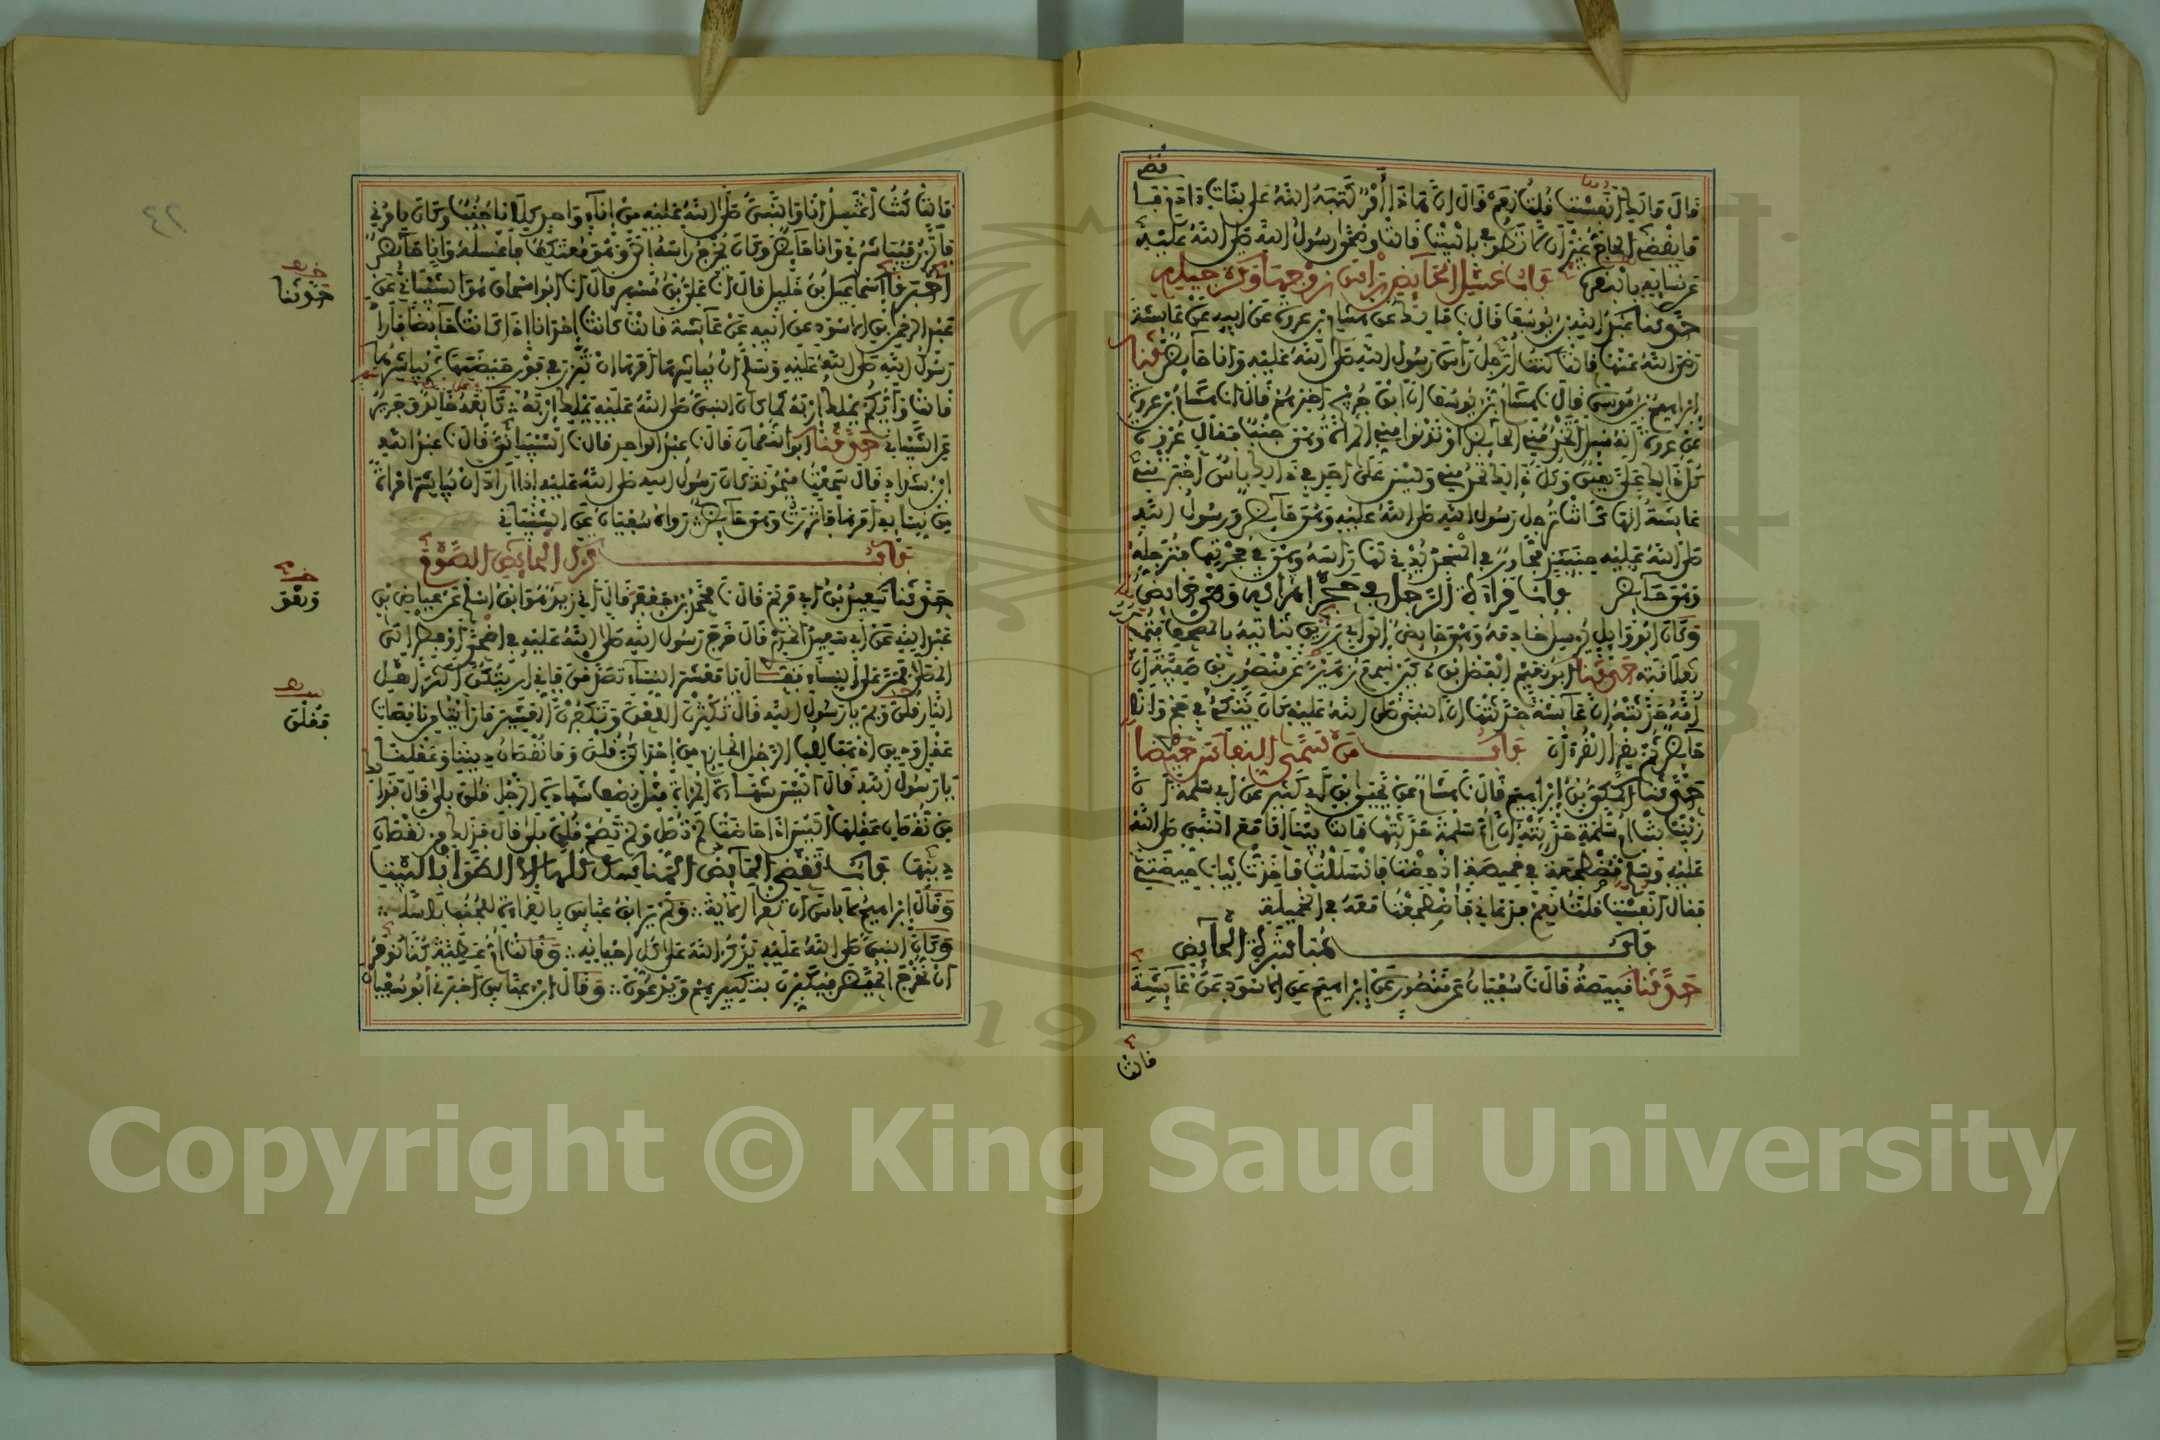 قال ما لك أنفست قلت نعم قال إن هذا أمر كتبه الله على بنات آدم فاقضي
ما يقضي الحاج غير أن لا تطوفي بالبيت قالت وضحى رسول الله صلى الله عليه
عن نسائه بالبقر باب غسل الحائض رأس زوجها وترجيله
حدثنا عبد الله بن يوسف قال نا مالك عن هشام بن عروة عن أبيه عن عائشة
رضي الله عنها قالت كنت أرجل رأس رسول الله صلى الله عليه وأنا حائض حدثنا
إبراهيم بن موسى قال نا هشام بن يوسف أن ابن جريج أخبرهم قال أنا هشام بن عروة
عن عروة أنه سئل أتخدمني الحائض أو تدنو مني المرأة وهي جنب فقال عروة
كل ذلك علي هين وكل ذلك تخدمني وليس على أحد في ذلك بأس أخبرتني
عائشة أنها كانت ترجل رسول الله صلى الله عليه وهي حائض ورسول الله
صلى الله عليه حينئذ مجاور في المسجد يدني لها رأسه وهي في حجرتها فترجله
وهي حائض باب قراءة الرجل في حجر امرأته وهي حائض
وكان أبو وائل يرسل خادمه وهي حائض إلى أبي رزين فتأتيه بالمصحف فتمسكه
بعلاقته حدثنا أبو نعيم الفضل بن دكين سمع زهيرا عن منصور بن صفية أن
أمه حدثته أن عائشة حدثتها أن النبي صلى الله عليه كان يتكئ في حجري وأنا
حائض ثم يقرأ القرآن باب من سمى النفاس حيضا
حدثنا المكي بن إبراهيم قال نا هشام عن يحيى بن أبي كثير عن أبي سلمة أن
زينب بنت أم سلمة حدثته أن أم سلمة حدثتها قالت بينا أنا مع النبي صلى الله
عليه وسلم مضطجعة في خميصة إذ حضت فانسللت فأخذت ثياب حيضتي
فقال أنفست قلت نعم فدعاني فاضطجعت معه في الخميلة
باب مباشرة الحائض
حدثنا قبيصة قال نا سفيان عن منصور عن إبراهيم عن الأسود عن عائشة
قالت
٤٢
قالت كنت أغتسل أنا والنبي صلى الله عليه من إناء واحد كلانا جنب وكان يأمرني
فأتزر فيباشرني وأنا حائض وكان يخرج رأسه إلي وهو معتكف فأغسله وأنا حائض
أخبرنا إسماعيل بن خليل قال أنا علي بن مسهر قال أنا أبو إسحاق هو الشيباني عن
عبد الرحمن بن الأسود عن أبيه عن عائشة قالت كانت إحدانا إذا كانت حائضا فأراد
رسول الله صلى الله عليه وسلم أن يباشرها أمرها أن تتزر في فور حيضتها ثم يباشرها
قالت وأيكم يملك إربه كما كان النبي صلى الله عليه يملك إربه تابعه خالد وجرير
عن الشيباني حدثنا أبو النعمان قال نا عبد الواحد قال نا الشيباني قال نا عبد الله
ابن شداد قال سمعت ميمونة كان رسول الله صلى الله عليه إذا أراد أن يباشر امرأة
من نسائه أمرها فاتزرت وهي حائض رواه سفيان عن الشيباني
باب ترك الحائض الصوم
حدثنا سعيد بن أبي مريم قال نا محمد بن جعفر قال أني زيد هو ابن أسلم عن عياض بن
عبد الله عن أبي سعيد الخدري قال خرج رسول الله صلى الله عليه في أضحى أو فطر إلى
المصلى فمر على النساء فقال يا معشر النساء تصدقن فإني أريتكن أكثر أهل
النار قلن وبم يا رسول الله قال تكثرن اللعن وتكفرن العشير ما رأيت من ناقصات
عقل ودين أذهب للب الرجل الحازم من إحداكن قلن وما نقصان ديننا وعقلنا
يا رسول الله قال أليس شهادة المرأة مثل نصف شهادة الرجل قلن بلى قال فذلك
من نقصان عقلها أليس إذا حاضت لم تصل ولم تصم قلن بلى قال فذلك من نقصان
دينها باب تقضي الحائض المناسك كلها إلا الطواف بالبيت
وقال إبراهيم لا بأس أن تقرأ الآية ولم ير ابن عباس بالقراءة للجنب بأسا
وكان النبي صلى الله عليه يذكر الله على كل أحيانه وقالت أم عطية كنا نؤمر
أن نخرج الحيض فيكبرن بتكبيرهم ويدعون وقال ابن عباس أخبرني أبو سفيان
حدثنا
وبم
فقلن
Copyright © King Saud University
1957